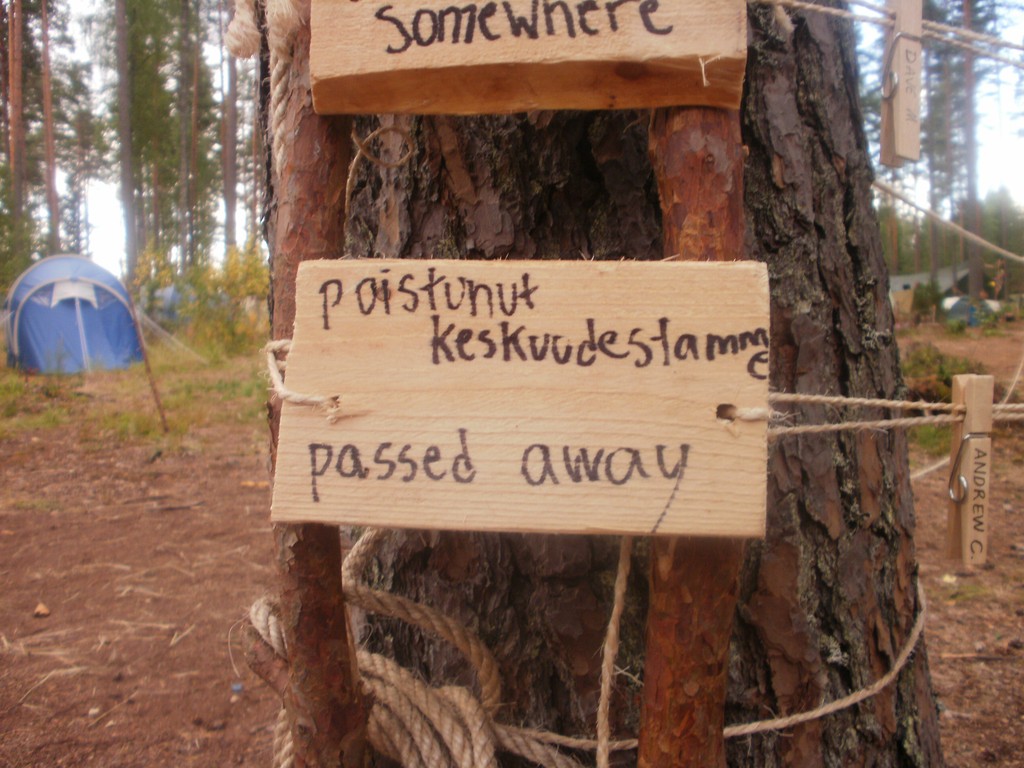 somewhere
poistunut
keskuudestamme
passed away
DAVE M
ANDREW C.